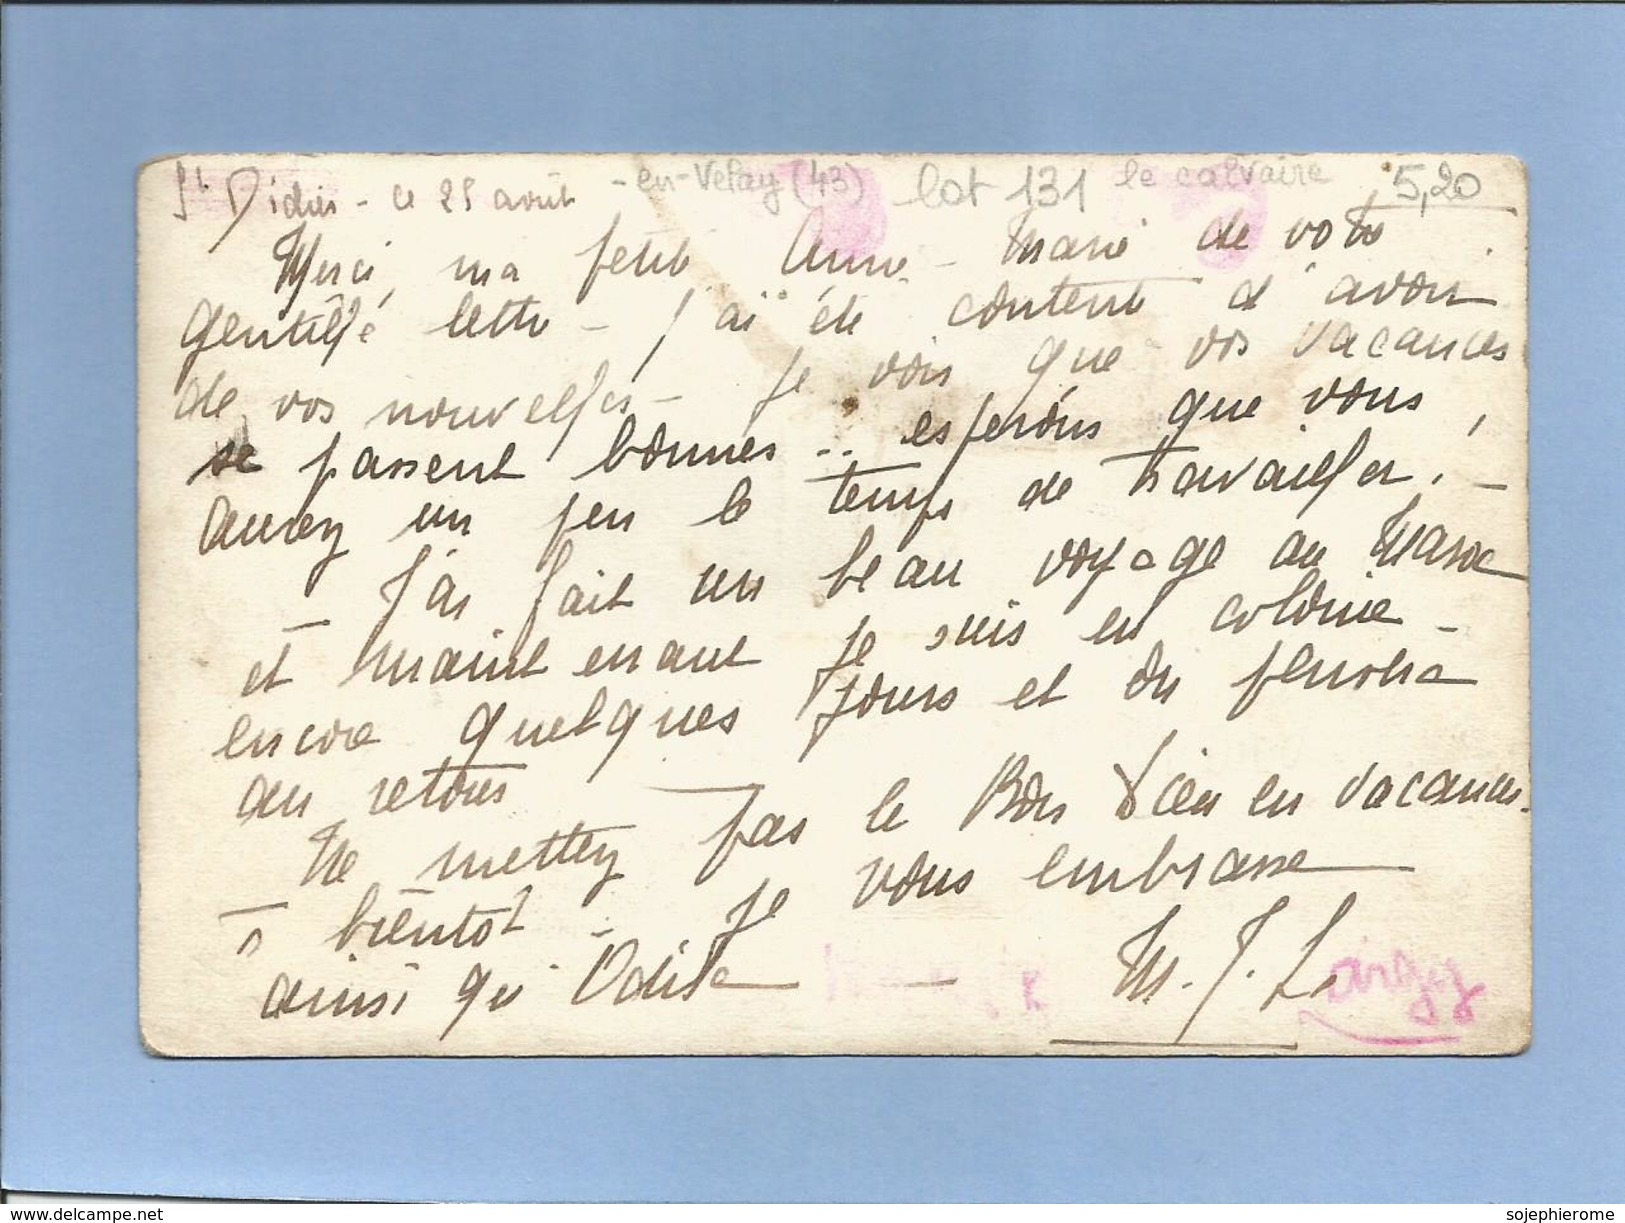 St Didier - ce 25 août - en - Velay (43) lot 131 le calvaire 5,20
Merci, ma petite Anne-Marie de votre
gentille lettre - j'ai été contente d'avoir
de vos nouvelles - Je vois que vos vacances
se passent bonnes .. espérons que vous
aurez un peu le temps de travailler. -
- J'ai fait un beau voyage au Maroc
et maintenant je suis en colonie -
encore quelques jours et on pensera
au retour
Ne mettez pas le Bon Dieu en vacances.
à bientôt - Je vous embrasse
ainsi qu'Odile - M. J. L.
www.delcampe.net sojephierome